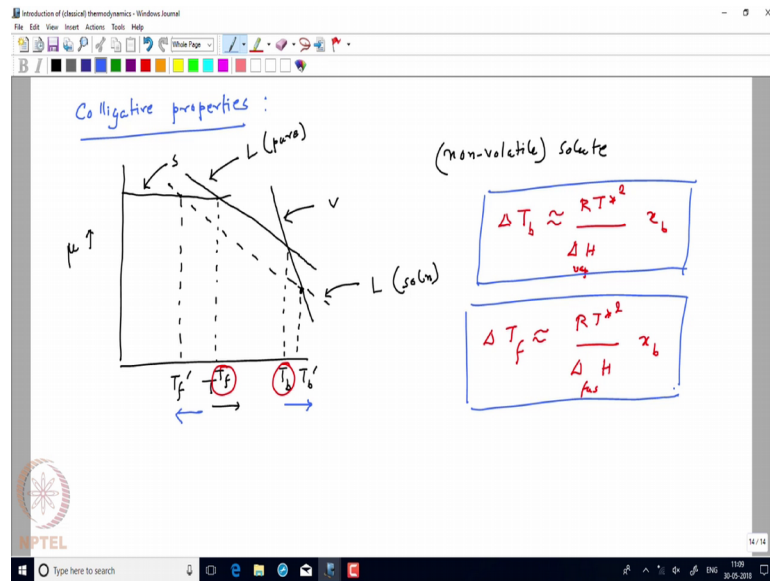 Introduction of (classical) thermodynamics - Windows Journal
File Edit View Insert Actions Tools Help
Whole Page
B I
Colligative properties :
S
L (pure)
V
μ ↑
L (soln)
T_f' T_f T_b T_b'
(non-volatile) solute
Δ T_b ≈ RT*² / Δ_vap H x_b
Δ T_f ≈ RT*² / Δ_fus H x_b
NPTEL
14 / 14
Type here to search
ENG
11:09
30-05-2018